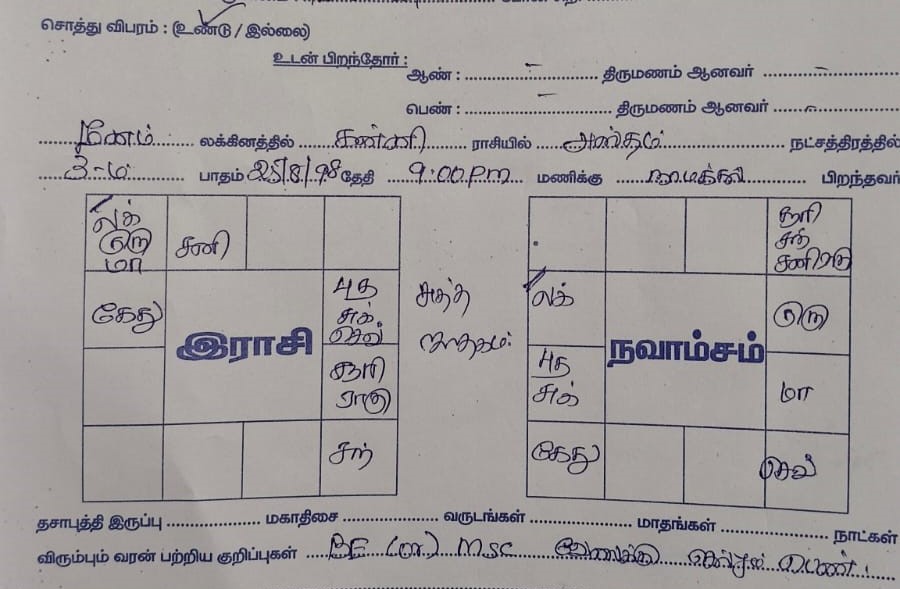 சொத்து விபரம் : (உண்டு / இல்லை)
உடன் பிறந்தோர் :
ஆண் : - திருமணம் ஆனவர் -
பெண் : - திருமணம் ஆனவர் -
மீனம் லக்கினத்தில் கன்னி ராசியில் அஸ்தம் நட்சத்திரத்தில்
3-ம் பாதம் 25/8/98 தேதி 9:00 P.m மணிக்கு பிறந்தவர்
லக்
குரு
மா
சனி
கேது
புத
சுக்
செவ்
சூரி
ராகு
சந்
இராசி
சுத்த
சூரி
சந்
சனி ராகு
லக்
குரு
புத
சுக்
மா
கேது
செவ்
நவாம்சம்
தசாபுத்தி இருப்பு மகாதிசை வருடங்கள் மாதங்கள் நாட்கள்
விரும்பும் வரன் பற்றிய குறிப்புகள் BE (or) MSC பெண்